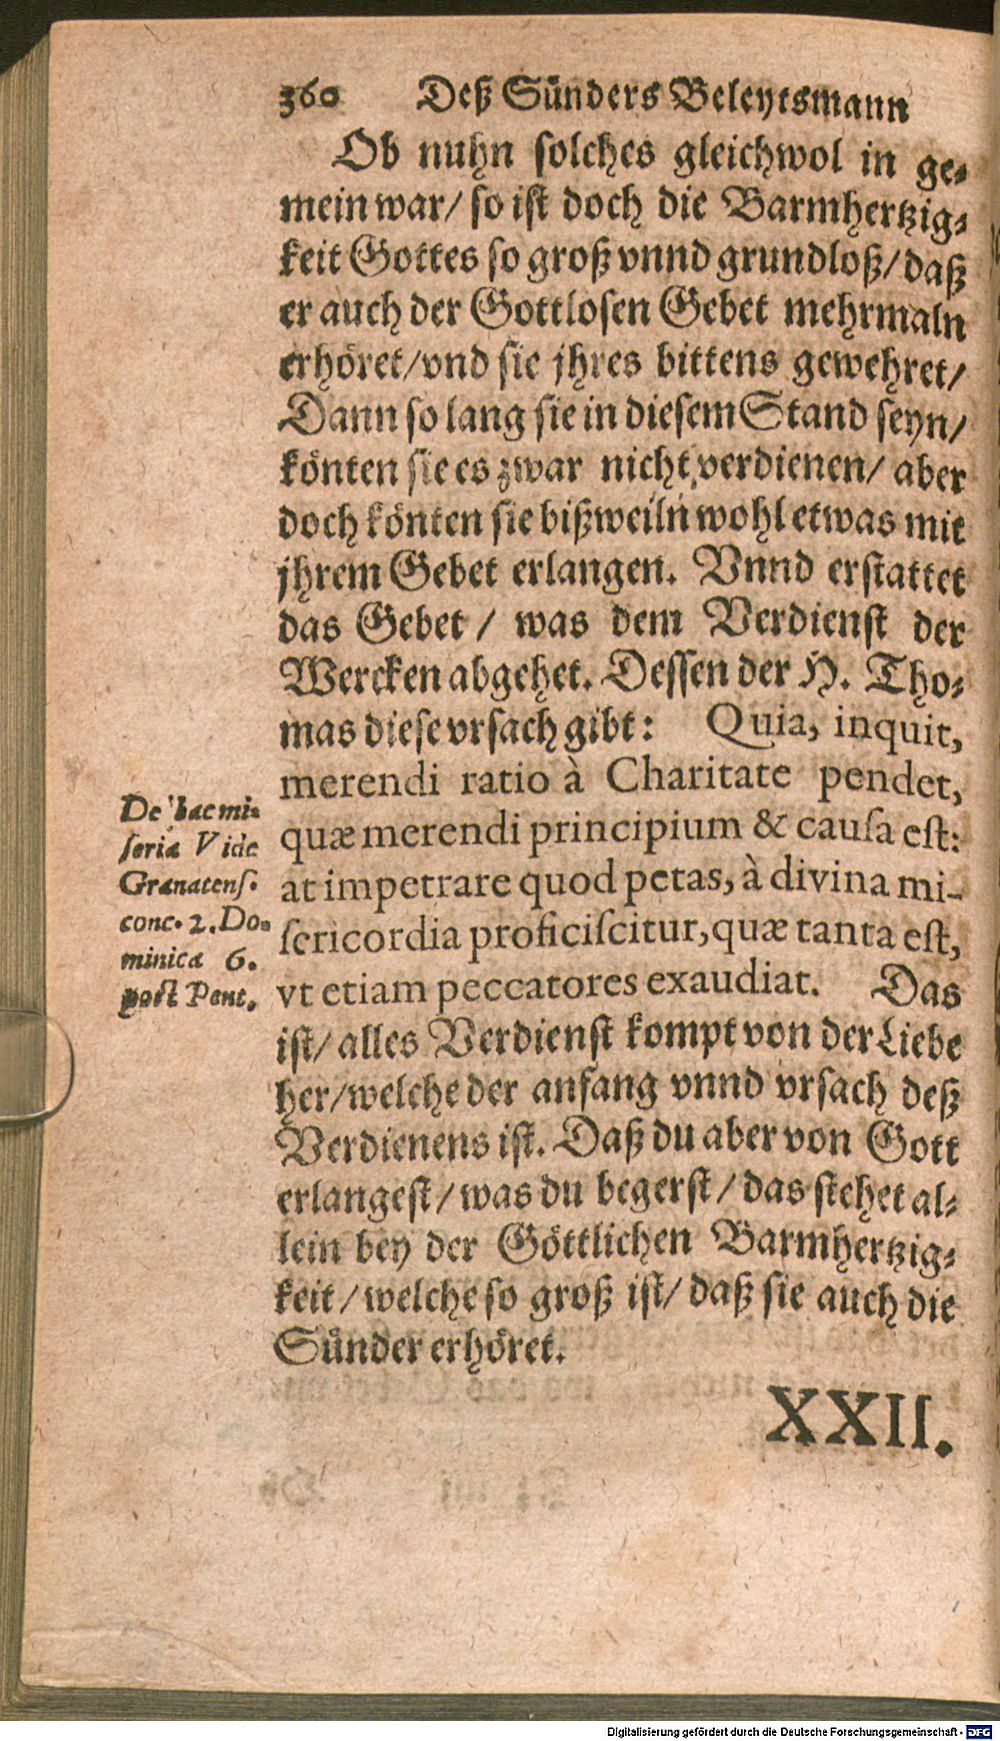 360 Deß Sünders Beleytsmann
Ob nuhn solches gleichwol in ge-
mein war/ so ist doch die Barmhertzig-
keit Gottes so groß vnnd grundloß/ daß
er auch der Gottlosen Gebet mehrmaln
erhöret/ vnd sie jhres bittens gewehret/
Dann so lang sie in diesem Stand seyn/
könten sie es zwar nicht verdienen/ aber
doch könten sie bißweiln wohl etwas mit
jhrem Gebet erlangen. Vnnd erstattet
das Gebet / was dem Verdienst der
Wercken abgehet. Dessen der H. Tho-
mas diese vrsach gibt: Quia, inquit,
merendi ratio à Charitate pendet,
quæ merendi principium & causa est:
at impetrare quod petas, à divina mi-
sericordia proficiscitur, quæ tanta est,
vt etiam peccatores exaudiat. Das
ist/ alles Verdienst kompt von der Liebe
her/ welche der anfang vnnd vrsach deß
Verdienens ist. Daß du aber von Gott
erlangest/ was du begerst/ das stehet al-
lein bey der Göttlichen Barmhertzig-
keit/ welche so groß ist/ daß sie auch die
Sünder erhöret.
XXII.
De hac mi-
seria Vide
Granatens.
conc. 2. Do-
minica 6.
post Pent.
Digitalisierung gefördert durch die Deutsche Forschungsgemeinschaft - DFG